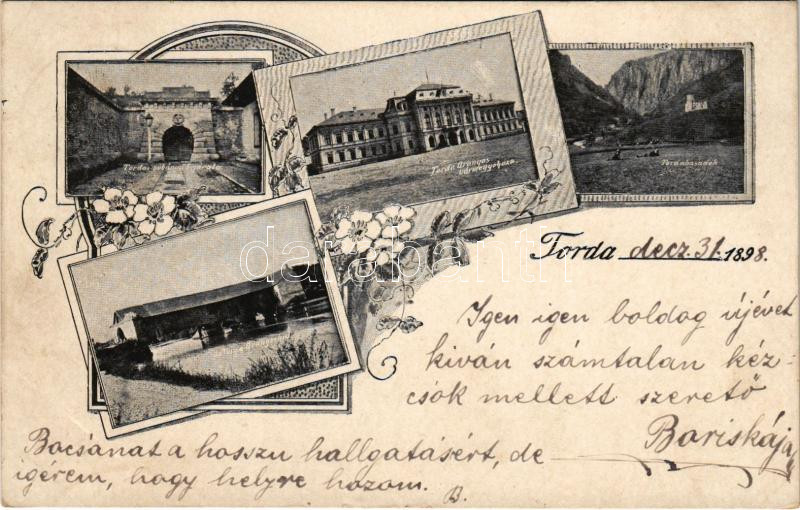 Tordai sóbánya bejárat
Torda Aranyos
vármegyeháza
Tordahasadék
Torda decz. 31. 1898.
Igen igen boldog újévet
kiván számtalan kéz-
csók mellett szerető
Bariskája
Bocsánat a hosszu hallgatásért, de
igérem, hogy helyre hozom.
B.
darabanth